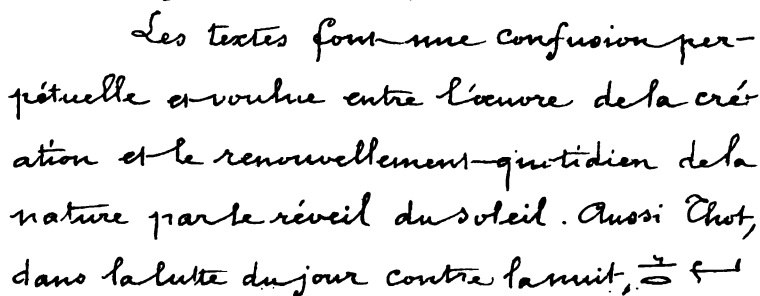 Les textes font une confusion per-
pétuelle et voulue entre l'œuvre de la cré-
ation et le renouvellement quotidien de la
nature par le réveil du soleil. Aussi Thot,
dans la lutte du jour contre la nuit,